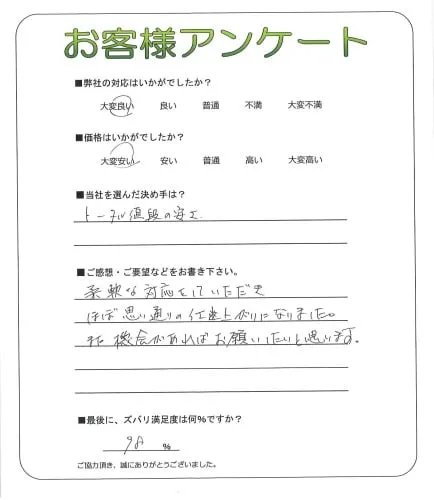 お客様アンケート
■弊社の対応はいかがでしたか?
大変良い 良い 普通 不満 大変不満
■価格はいかがでしたか?
大変安い 安い 普通 高い 大変高い
■当社を選んだ決め手は?
トータル値段の安さ
■ご感想・ご要望などをお書き下さい。
柔軟な対応をしていただき
ほぼ思い通りの仕上がりになりました。
また機会があればお願いしたいと思います。
■最後に、ズバリ満足度は何%ですか?
98 %
ご協力頂き、誠にありがとうございました。